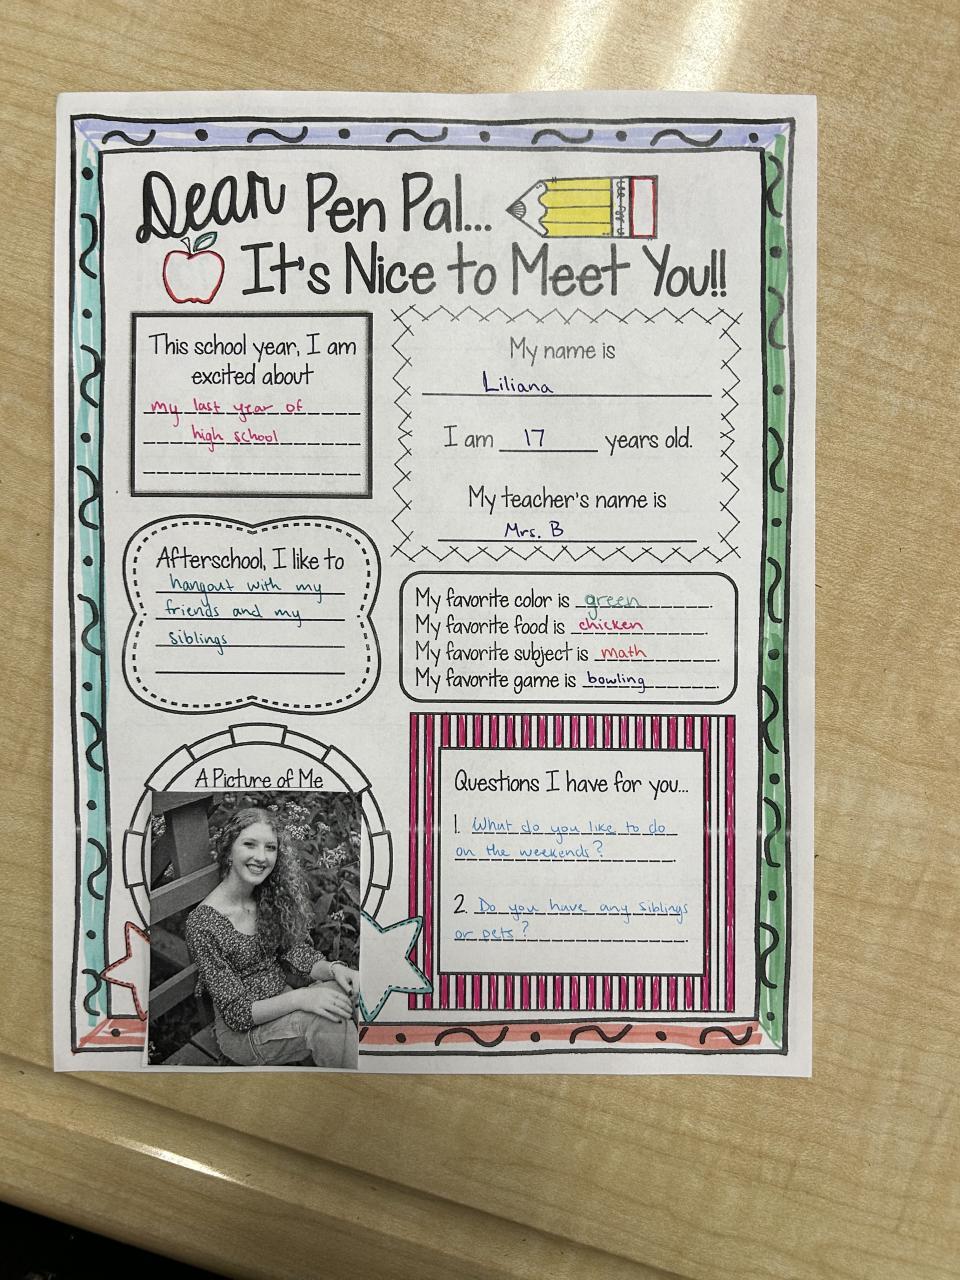 Dear Pen Pal...
It's Nice to Meet You!!
This school year, I am
excited about
my last year of
high school
My name is
Liliana
I am 17 years old.
My teacher's name is
Mrs. B
Afterschool, I like to
hangout with my
friends and my
siblings
My favorite color is green.
My favorite food is chicken.
My favorite subject is math.
My favorite game is bowling.
A Picture of Me
Questions I have for you...
1. What do you like to do
on the weekends?
2. Do you have any siblings
or pets?